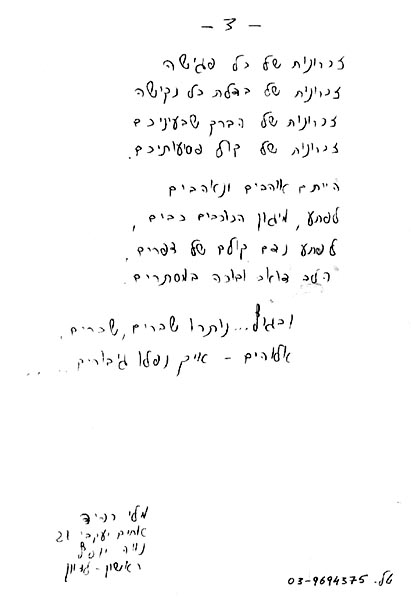 - 3 -
זכרונות של כל פגישה
זכרונות של בדלת כל נקישה
זכרונות של הברק שבעיניכם
זכרונות של קול פסיעותיכם.
הייתם אוהבים ונאהבים
לפתע, מיגון הכוכבים כבים,
לפתע נדם קולם של צפרים,
הלב דואב ובוכה במסתרים
ובגוף... נותרו שברים, שברים.
אלוהים - איך נפלו גיבורים...
מלי
אחים יעקבי 21
נוה
ראשון-לציון
טל. 03-9694375